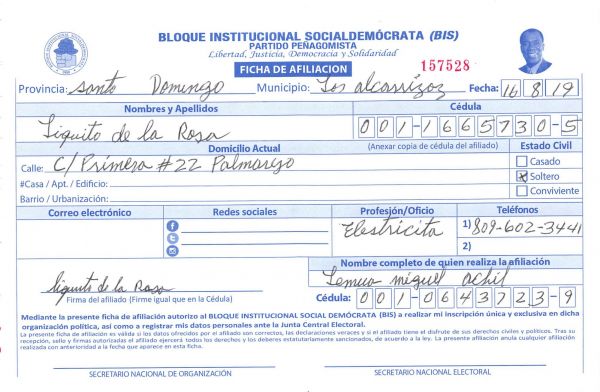 BLOQUE INSTITUCIONAL SOCIALDEMÓCRATA (BIS)
PARTIDO PEÑAGOMISTA
Libertad, Justicia, Democracia y Solidaridad
FICHA DE AFILIACION
157528
Provincia: Santo Domingo Municipio: Los alcarrizos Fecha: 16/8/19
Nombres y Apellidos Cédula
Siquito de la Rosa 001-1665730-5
Domicilio Actual (Anexar copia de cédula del afiliado) Estado Civil
Calle: C/ Primera #22 Palmarejo Casado
#Casa / Apt. / Edificio: Soltero
Barrio / Urbanización: Conviviente
Correo electrónico Redes sociales Profesjón/Oficio Teléfonos
Elestricita 1) 809-602-3441
2)
Nombre completo de quien realiza la afiliación
siquito de la Rosa miguel
Firma del afiliado (Firme igual que en la Cédula) Cédula: 001-0643723-9
Mediante la presente ficha de afiliación autorizo al BLOQUE INSTITUCIONAL SOCIAL DEMÓCRATA (BIS) a realizar mi inscripción única y exclusiva en dicha
organización política, así como a registrar mis datos personales ante la Junta Central Electoral.
La presente ficha de afiliación es válida si los datos ofrecidos por el afiliado son correctos, las declaraciones veraces y si el afiliado tiene el disfrute de sus derechos civiles y políticos. Tras su
recepción, sello y firmas autorizadas el afiliado ejercerá todos los derechos y los deberes estatutariamente sancionados, de acuerdo a la ley. La presente afiliación anula cualquier afiliación
realizada con anterioridad a la fecha que aparece en esta ficha.
SECRETARIO NACIONAL DE ORGANIZACIÓN SECRETARIO NACIONAL ELECTORAL